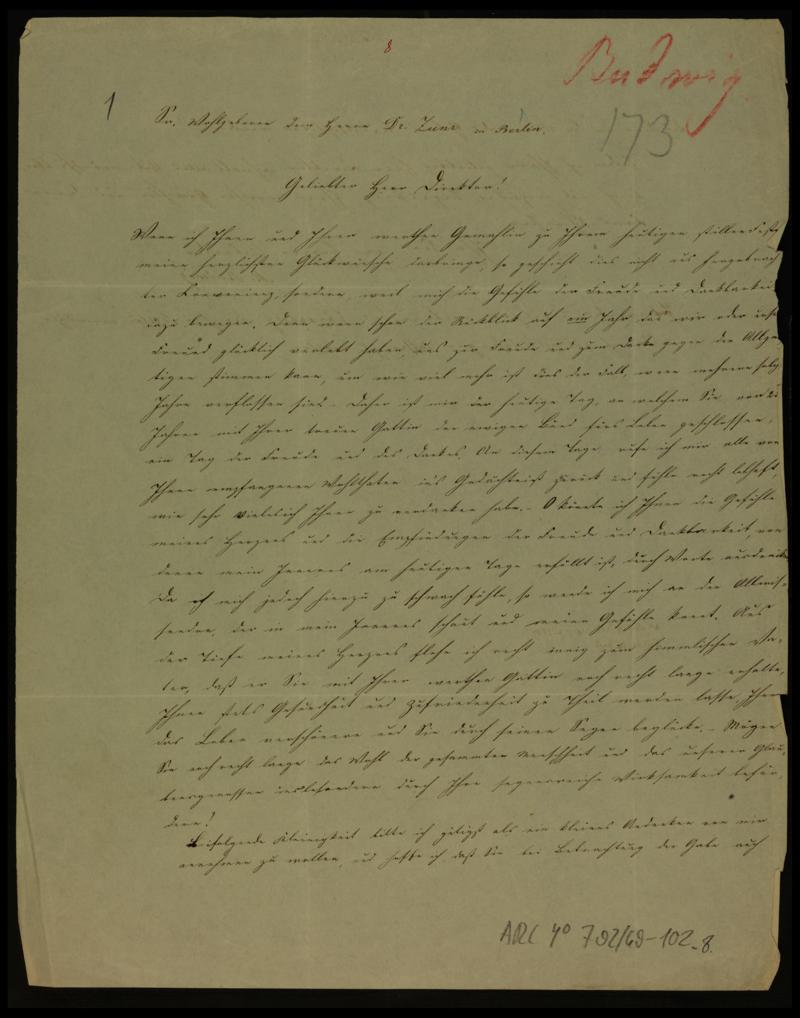 8
Budwig
1
173
Sr. Wohlgeboren dem Herrn Dr. Zunz in Berlin.
Geliebter Herr Direktor!
Wenn ich Ihnen und Ihrer werthen Gemahlin zu Ihrem heutigen stillen Feste
meine herzlichsten Glückwünsche darbringe, so geschieht dies nicht aus hergebrach-
ter Convenienz, sondern, weil mich die Gefühle der Freude und Dankbarkeit
dazu bewegen. Denn wenn schon der Rückblick auf ein Jahr das wir oder unser
Freund glücklich verlebt haben, uns zur Freude und zum Danke gegen den Allgü-
tigen stimmen kann, um wie viel mehr ist dies der Fall, wenn mehrere solche
Jahre verflossen sind. – Daher ist mir der heutige Tag, an welchem Sie vor
Jahren mit Ihrer treuen Gattin den ewigen Bund fürs Leben geschlossen,
ein Tag der Freude und des Dankes. An diesem Tage rufe ich mir alle von
Ihnen empfangenen Wohlthaten ins Gedächtniß zurück und fühle recht lebhaft,
wie sehr vieles ich Ihnen zu verdanken habe. – O könnte ich Ihnen die Gefühle
meines Herzens und die Empfindungen der Freude und Dankbarkeit, von
denen mein Inneres am heutigen Tage erfüllt ist, durch Worte ausdrücken
Da ich mich jedoch hierzu zu schwach fühle, so wende ich mich an den Allwis-
senden, der in mein Inneres schaut und meine Gefühle kennt. Aus
der Tiefe meines Herzens flehe ich recht innig zum himmlischen Va-
ter, daß er Sie mit Ihrer werthen Gattin noch recht lange erhalte,
Ihnen stets Gesundheit und Zufriedenheit zu Theil werden lasse, Ihnen
das Leben verschönere und Sie durch seinen Segen beglücke. – Mögen
Sie noch recht lange das Wohl der gesammten Menschheit und das unserer Glau-
bensgenossen insbesondere durch Ihre segensreiche Wirksamkeit beför-
dern!
Beifolgende Kleinigkeit bitte ich gütigst als ein kleines Andenken von mir
annehmen zu wollen, und hoffe ich daß Sie bei Betrachtung der Gabe auch
ARC 4° 792/69-102-8.